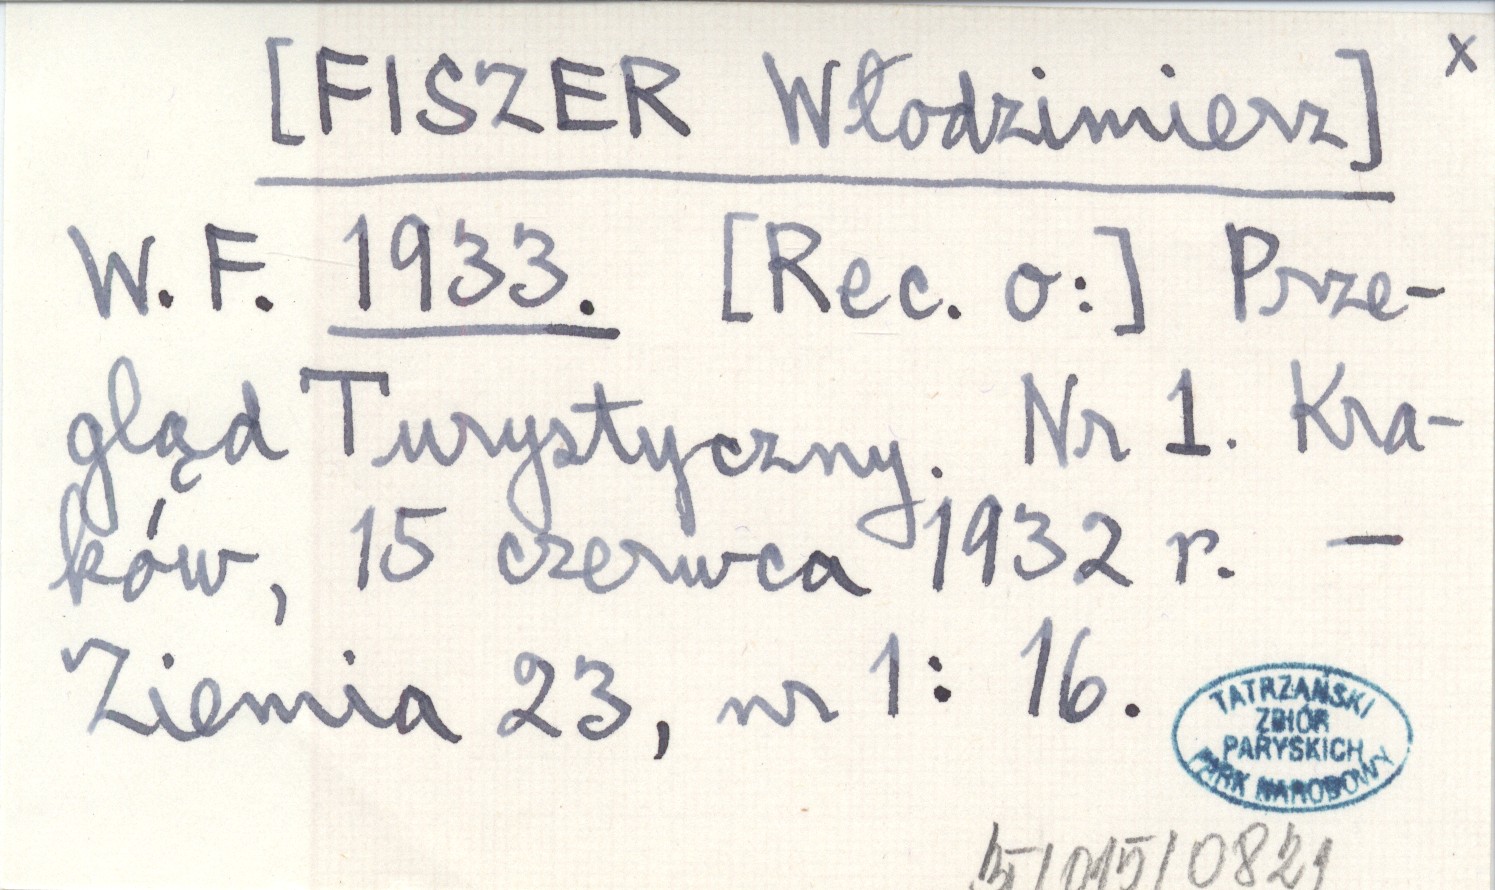 [FISZER Włodzimierz] x
W. F. 1933. [Rec. o:] Prze-
gląd Turystyczny. Nr 1. Kra-
ków, 15 czerwca 1932 r. —
Ziemia 23, nr 1: 16.
TATRZAŃSKI
ZBIÓR
PARYSKICH
PARK NARODOWY
5/015/0821